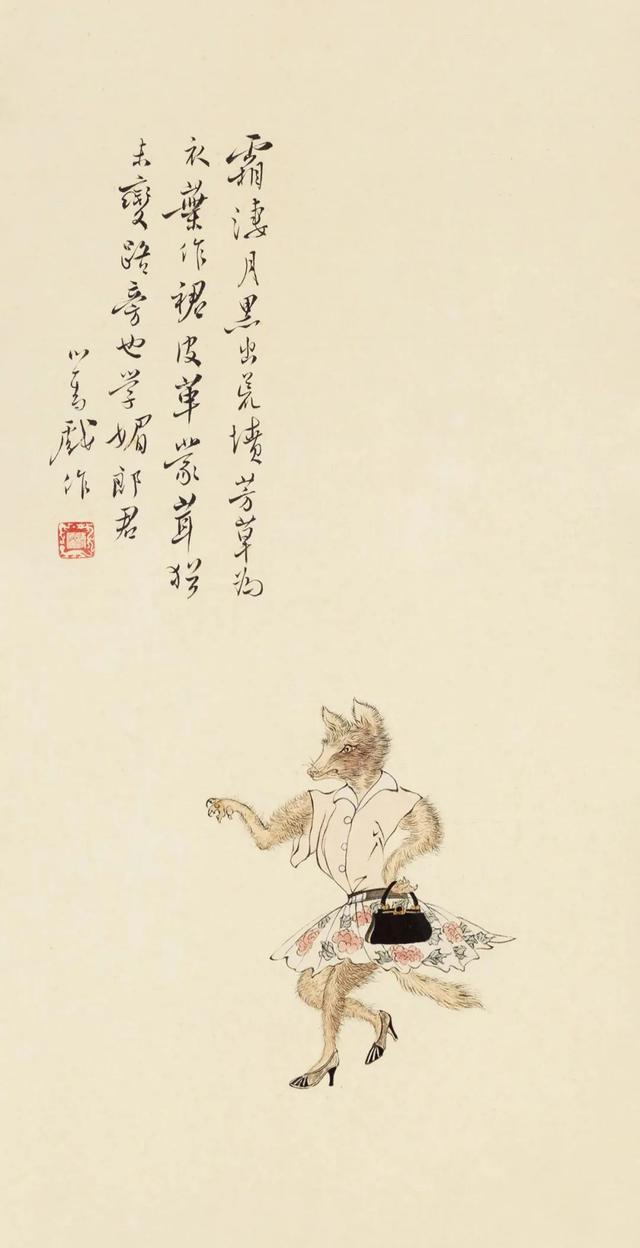 霜淒月黑出荒墳芳草為
衣葉作裙皮革蒙茸猶
未變路旁也学媚郎君
心畬戲作